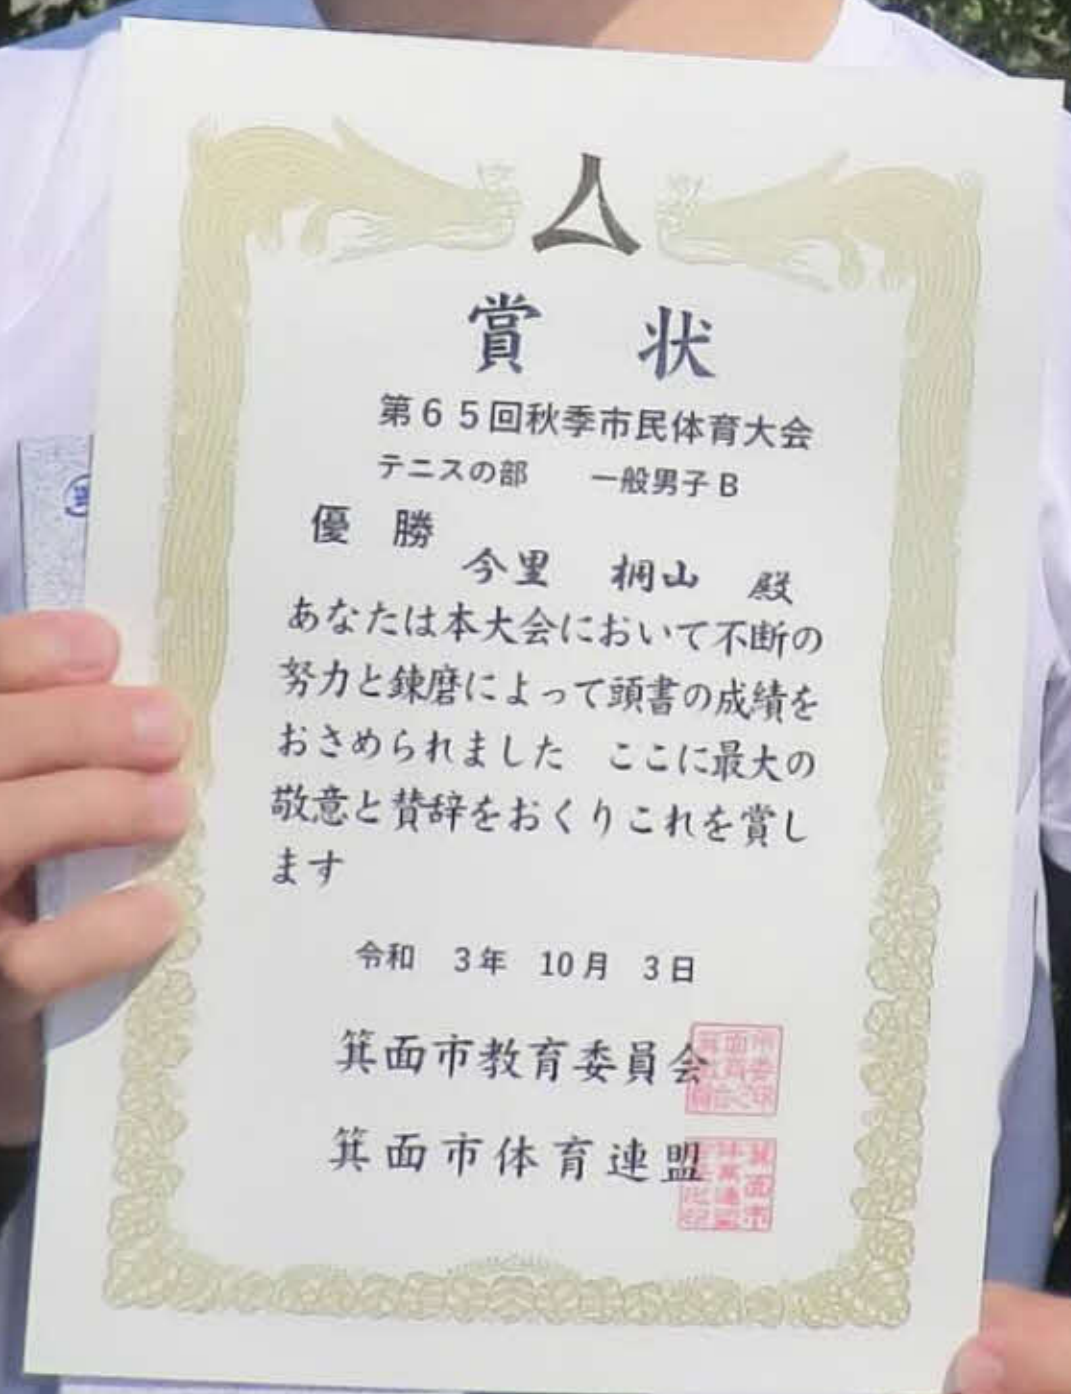 賞状
第６５回秋季市民体育大会
テニスの部　一般男子Ｂ
優勝
今里　桐山　殿
あなたは本大会において不断の
努力と錬磨によって頭書の成績を
おさめられました　ここに最大の
敬意と賛辞をおくりこれを賞し
ます
令和　3年　10月　3日
箕面市教育委員会
箕面市体育連盟